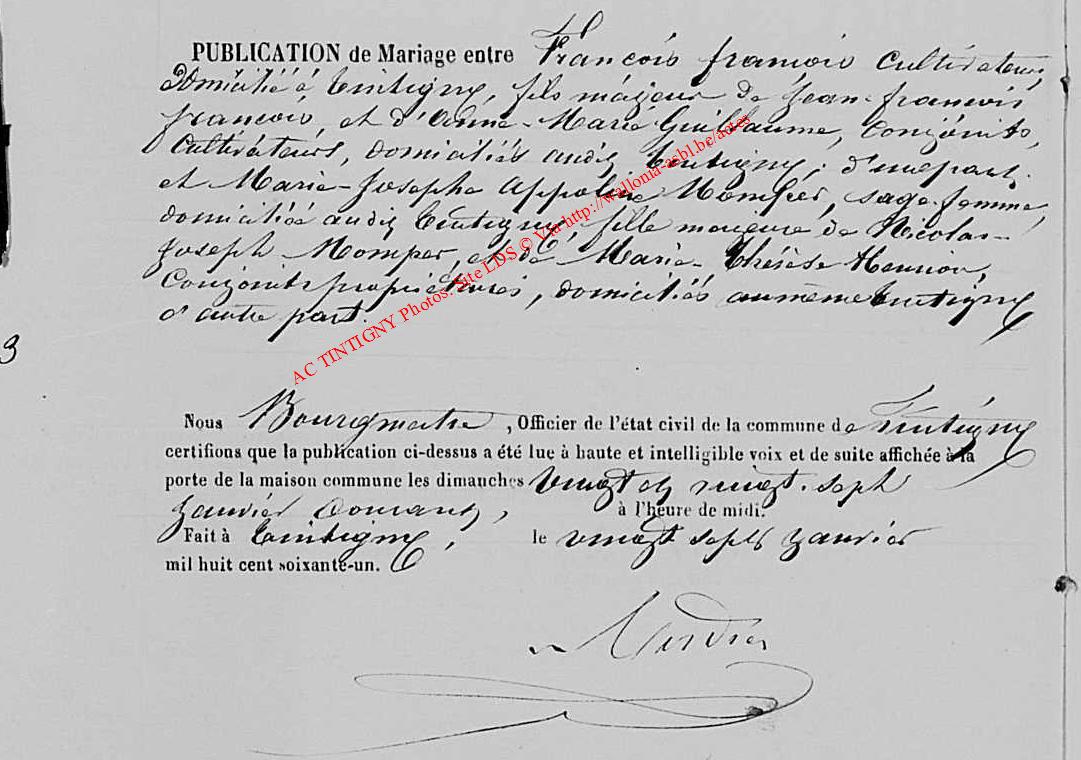 PUBLICATION de Mariage entre François françois Cultivateur,
Domicilié à Tintigny, fils majeur de Jean-françois
françois, et d'Anne-Marie Guillaume, conjoints,
Cultivateurs, domiciliés audit Tintigny; d'une part.
et Marie-Josephe Appoline Momper, sage-femme,
domiciliée audit Tintigny, fille majeure de Nicolas-
Joseph Momper, et de Marie-Thérèse
Conjoints propriétaires, domiciliés au même Tintigny
d'autre part.
AC TINTIGNY Photos: Site LDS © Via http://wallonia-asbl.be/actes
3
Nous Bourgmestre, Officier de l'état civil de la commune de Tintigny
certifions que la publication ci-dessus a été lue à haute et intelligible voix et de suite affichée à la
porte de la maison commune les dimanches vingt et vingt-sept
Janvier Courant, à l'heure de midi.
Fait à Tintigny, le vingt sept Janvier
mil huit cent soixante-un.